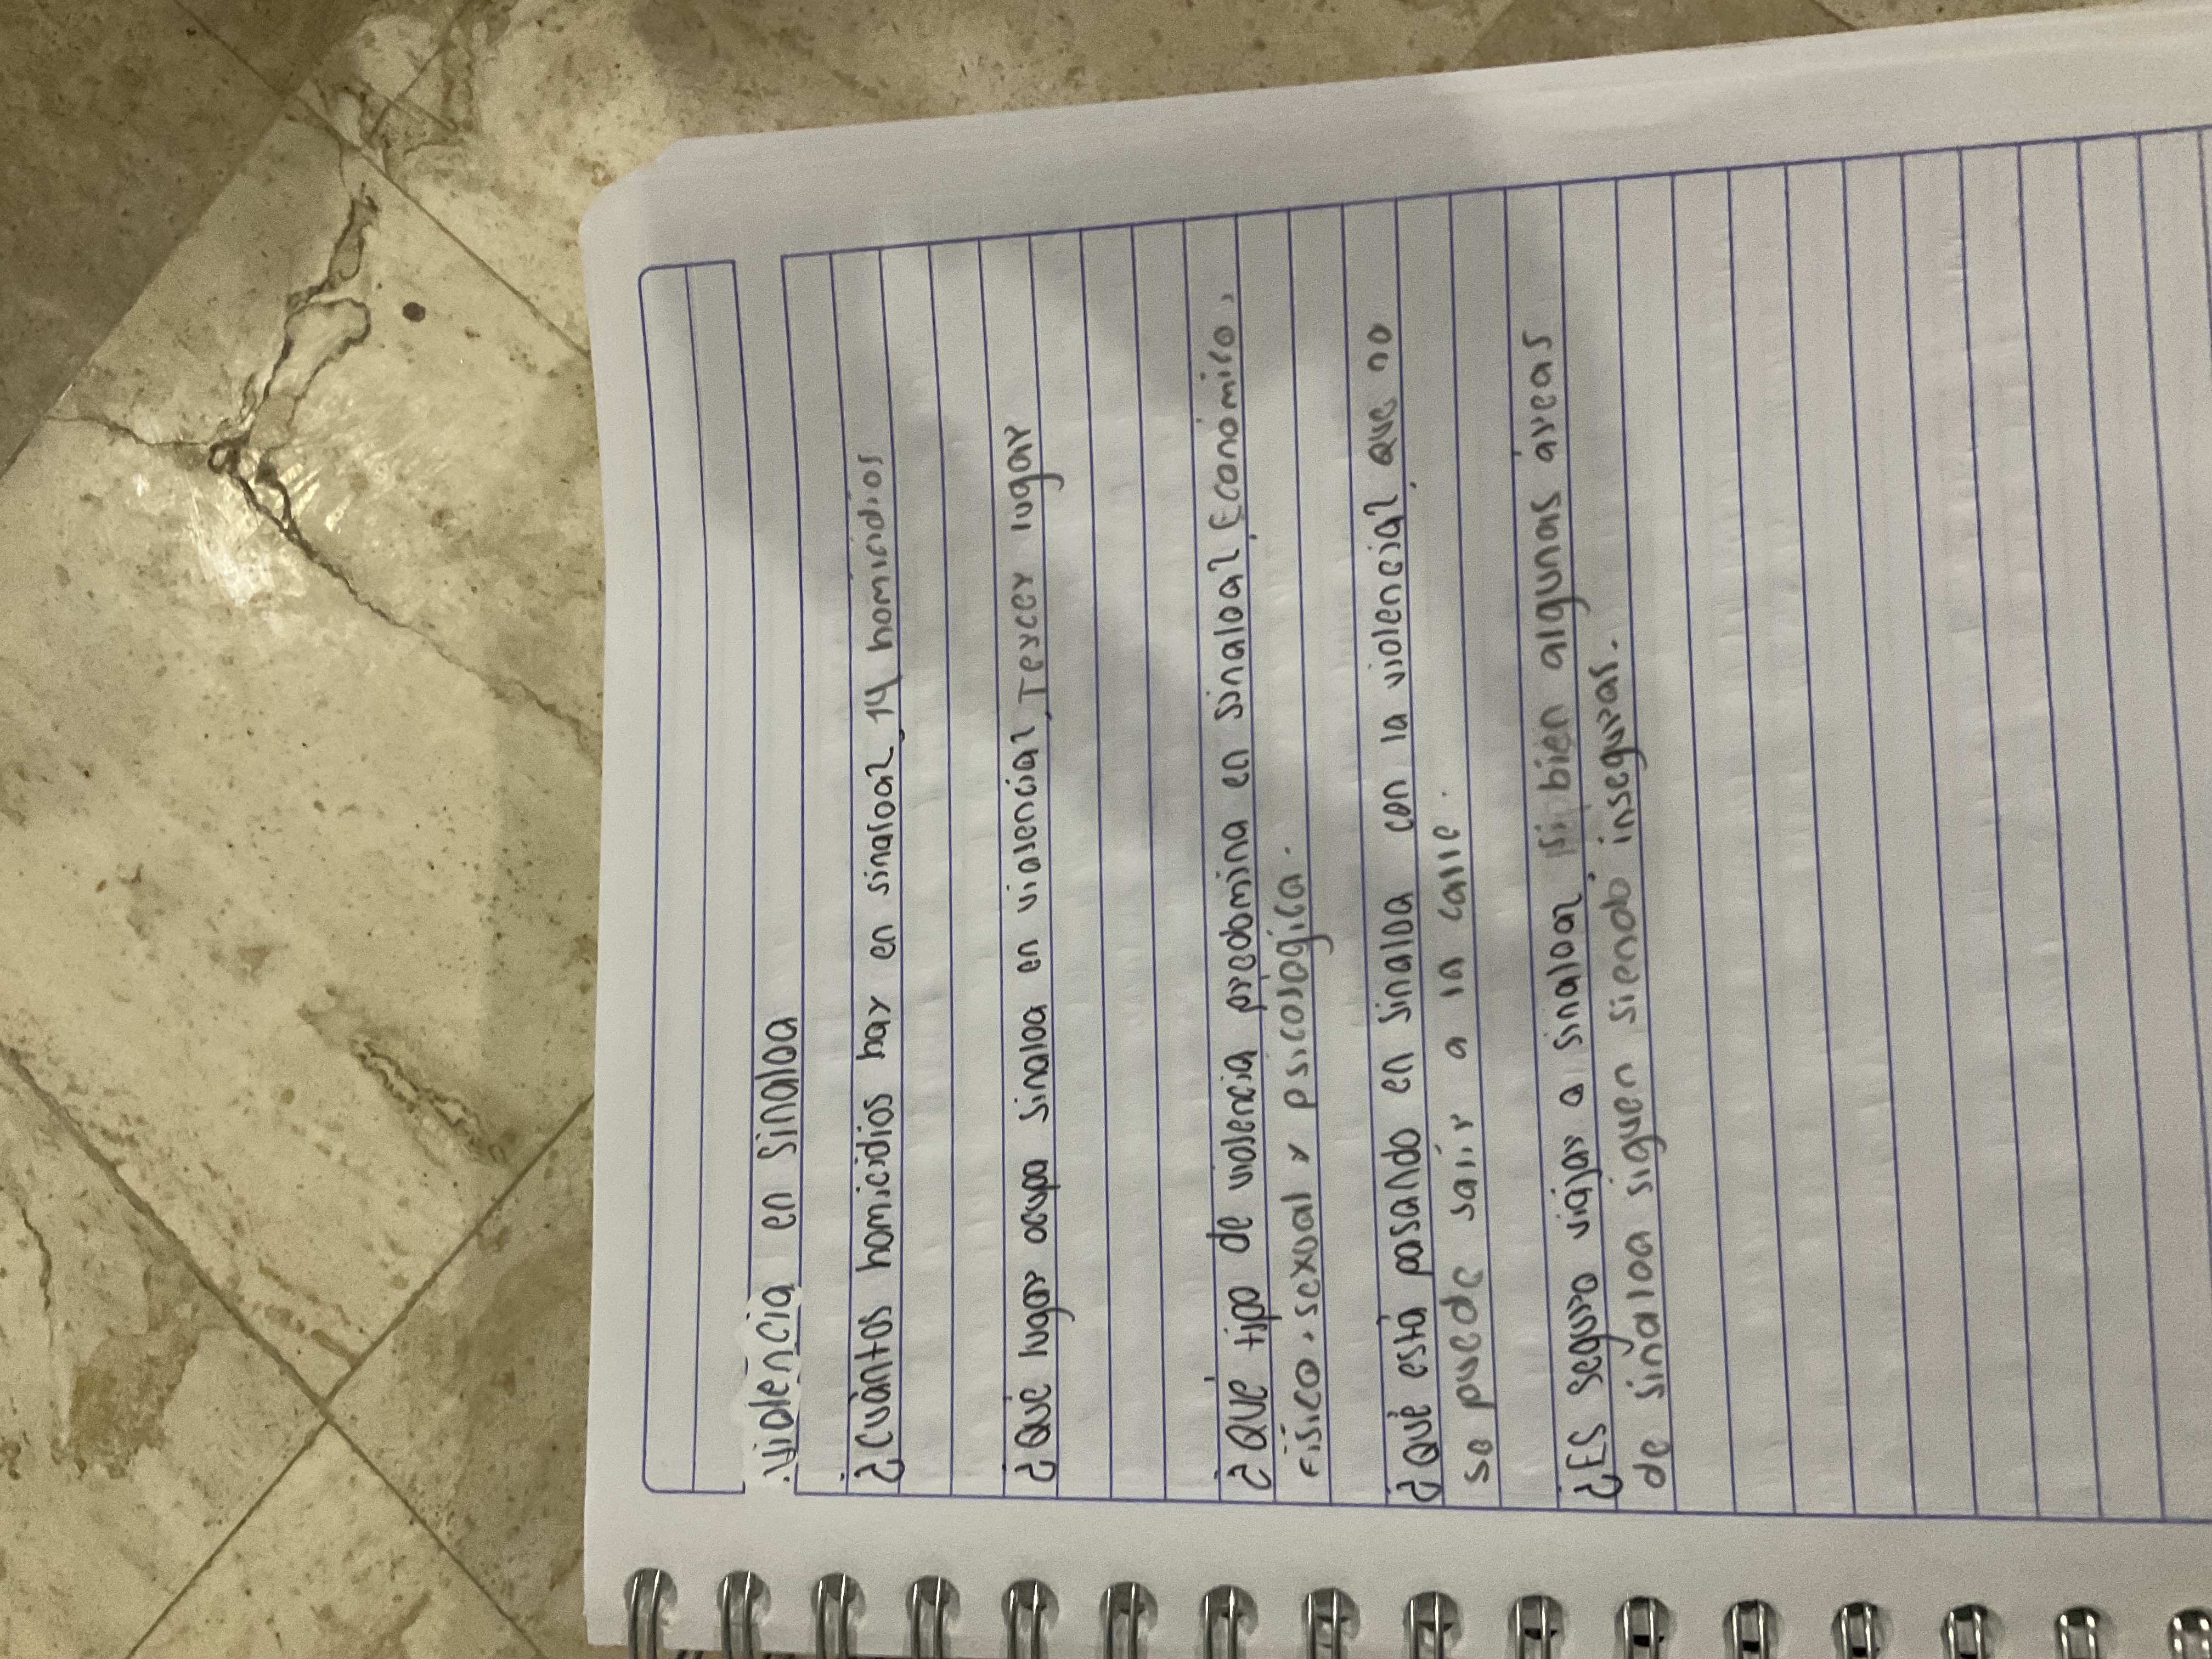 Violencia en Sinaloa
¿Cuántos homicidios hay en sinaloa?, 14 homicidios
¿Qué lugar ocupa Sinaloa en violencia?, Tercer lugar
¿Qué tipo de violencia predomina en Sinaloa?, Económico,
Físico, sexual y psicológica.
¿Qué está pasando en Sinaloa con la violencia?, que no
se puede salir a la calle.
¿ES seguro viajar a sinaloa?, si bien algunas áreas
de sinaloa siguen siendo inseguras.